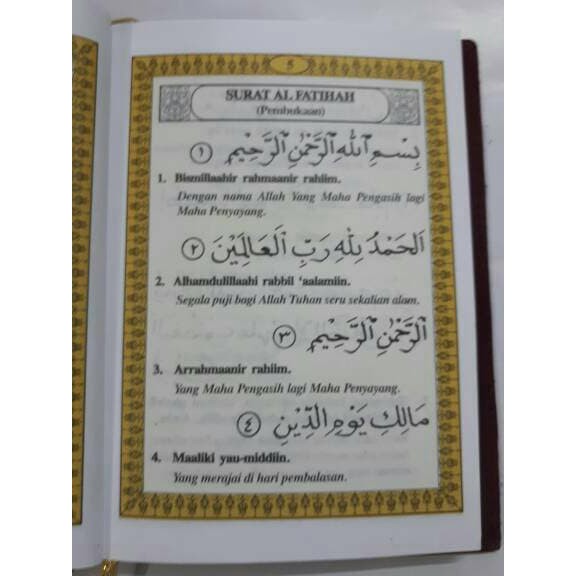 5
SURAT AL FATIHAH
(Pembukaan)
بِسْمِ اللهِ الرَّحْمٰنِ الرَّحِيْمِ ①
1. Bismillaahir rahmaanir rahiim.
Dengan nama Allah Yang Maha Pengasih lagi
Maha Penyayang.
اَلْحَمْدُ لِلّٰهِ رَبِّ الْعَالَمِيْنَ ②
2. Alhamdulillaahi rabbil 'aalamiin.
Segala puji bagi Allah Tuhan seru sekalian alam.
الرَّحْمٰنِ الرَّحِيْمِ ③
3. Arrahmaanir rahiim.
Yang Maha Pengasih lagi Maha Penyayang.
مَالِكِ يَوْمِ الدِّيْنِ ④
4. Maaliki yau-middiin.
Yang merajai di hari pembalasan.